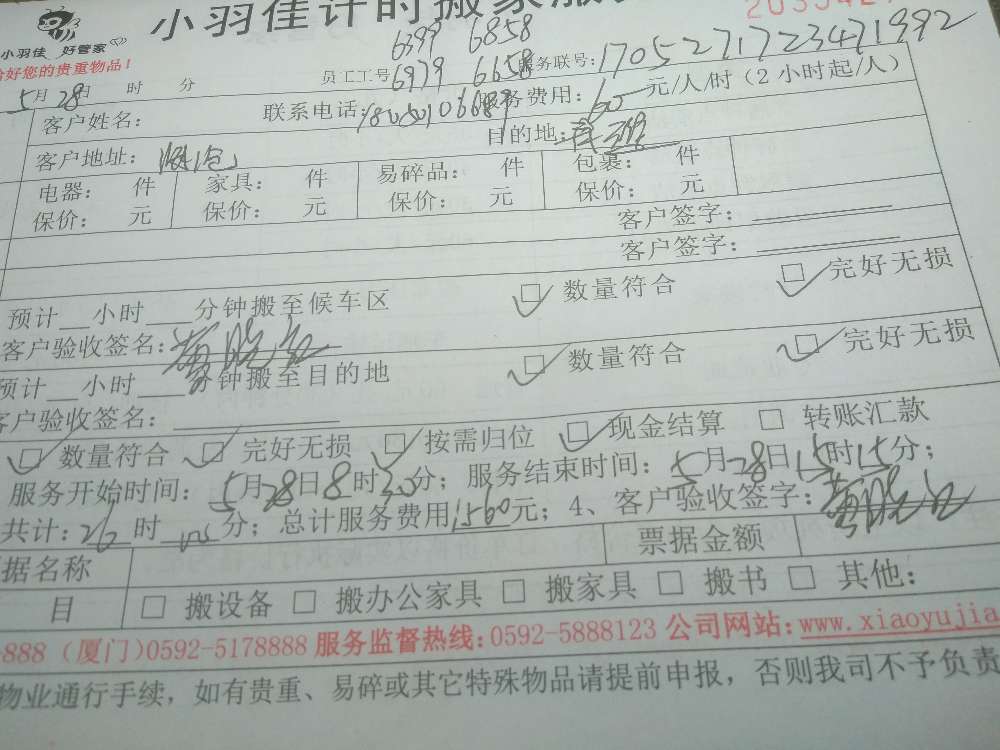 小羽佳计时搬家服
小羽佳 好管家
好您的贵重物品!
5月28日 时 分 员工工号 6399 6858 6979 6658 服务联号: 170527172347 1992
客户姓名: 联系电话: 服务费用: 60 元/人/时(2小时起/人)
客户地址: 目的地:
电器: 件 家具: 件 易碎品: 件 包裹: 件
保价: 元 保价: 元 保价: 元 保价: 元
客户签字:
客户签字:
预计 小时 分钟搬至候车区 数量符合 完好无损
客户验收签名:
预计 小时 分钟搬至目的地 数量符合 完好无损
客户验收签名:
数量符合 完好无损 按需归位 现金结算 转账汇款
服务开始时间: 5月28日8时30分; 服务结束时间: 5月28日15时15分;
共计: 26 时 00 分; 总计服务费用1560元; 4、客户验收签字:
据名称 票据金额
目 搬设备 搬办公家具 搬家具 搬书 其他:
888 (厦门)0592-5178888 服务监督热线:0592-5888123 公司网站:www.xiaoyujia
物业通行手续,如有贵重、易碎或其它特殊物品请提前申报,否则我司不予负责